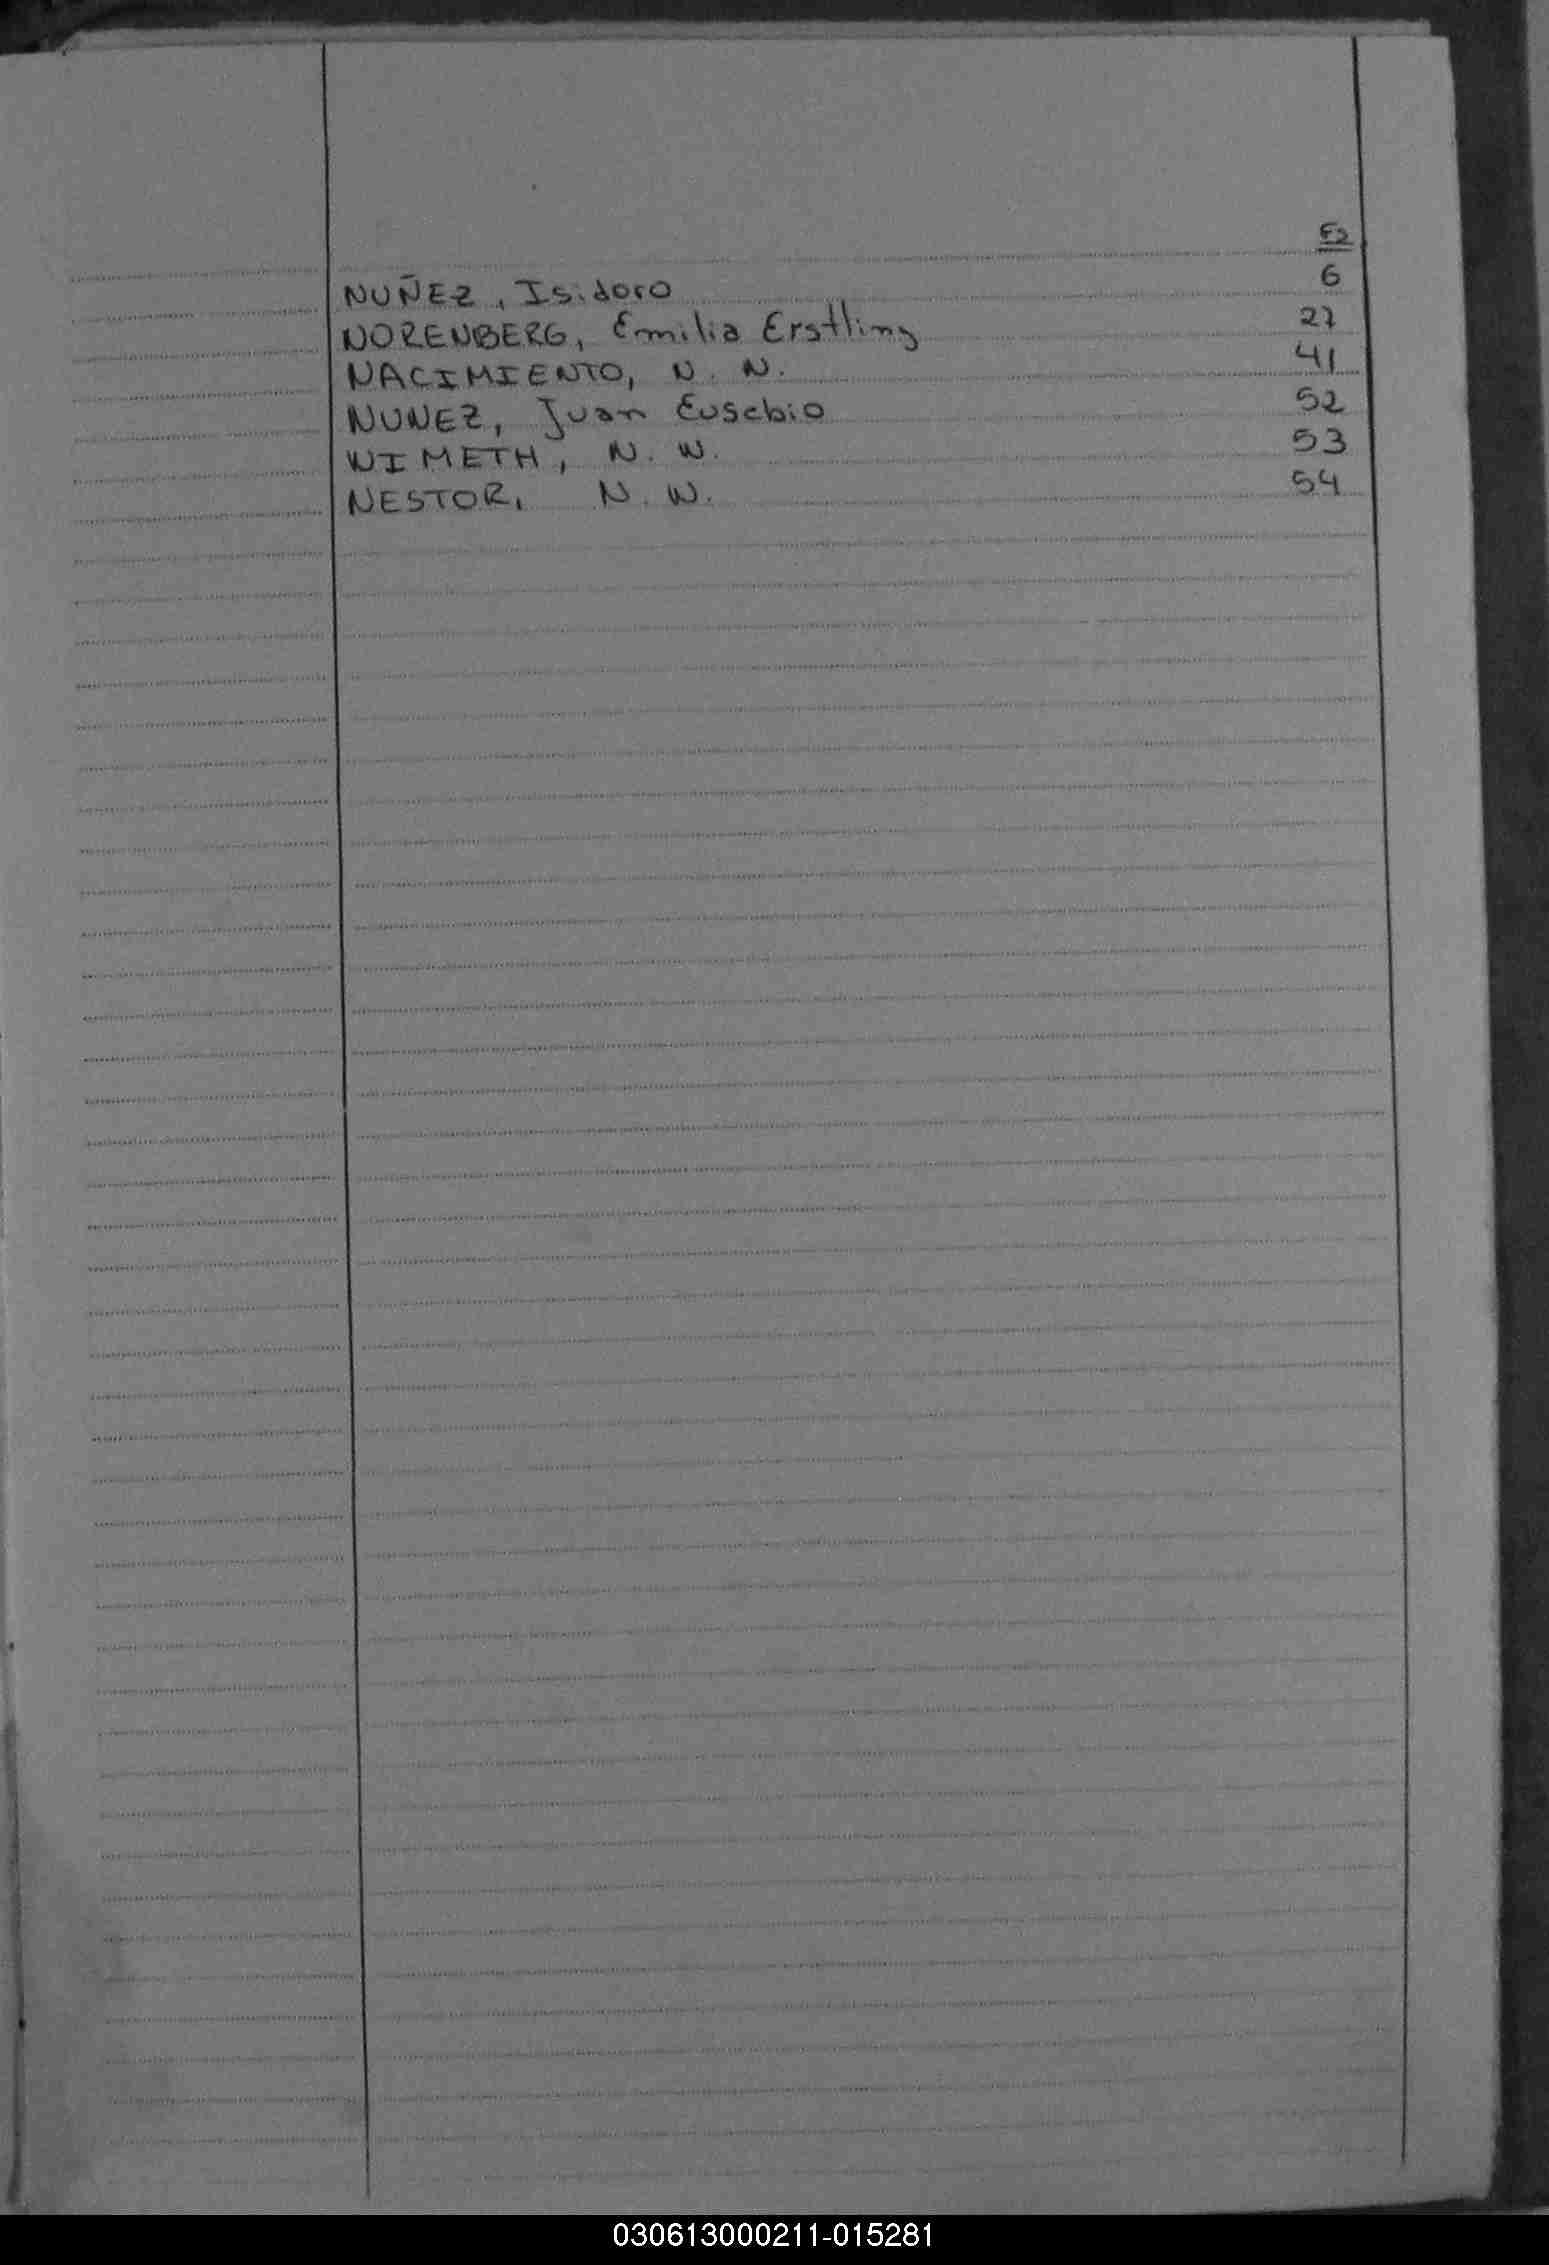 Fs
NUÑEZ, Isidoro 6
NORENBERG, Emilia Erstling 27
NACIMIENTO, N. N. 41
NUNEZ, Juan Eusebio 52
NIMETH, N. N. 53
NESTOR, N. N. 54
030613000211-015281